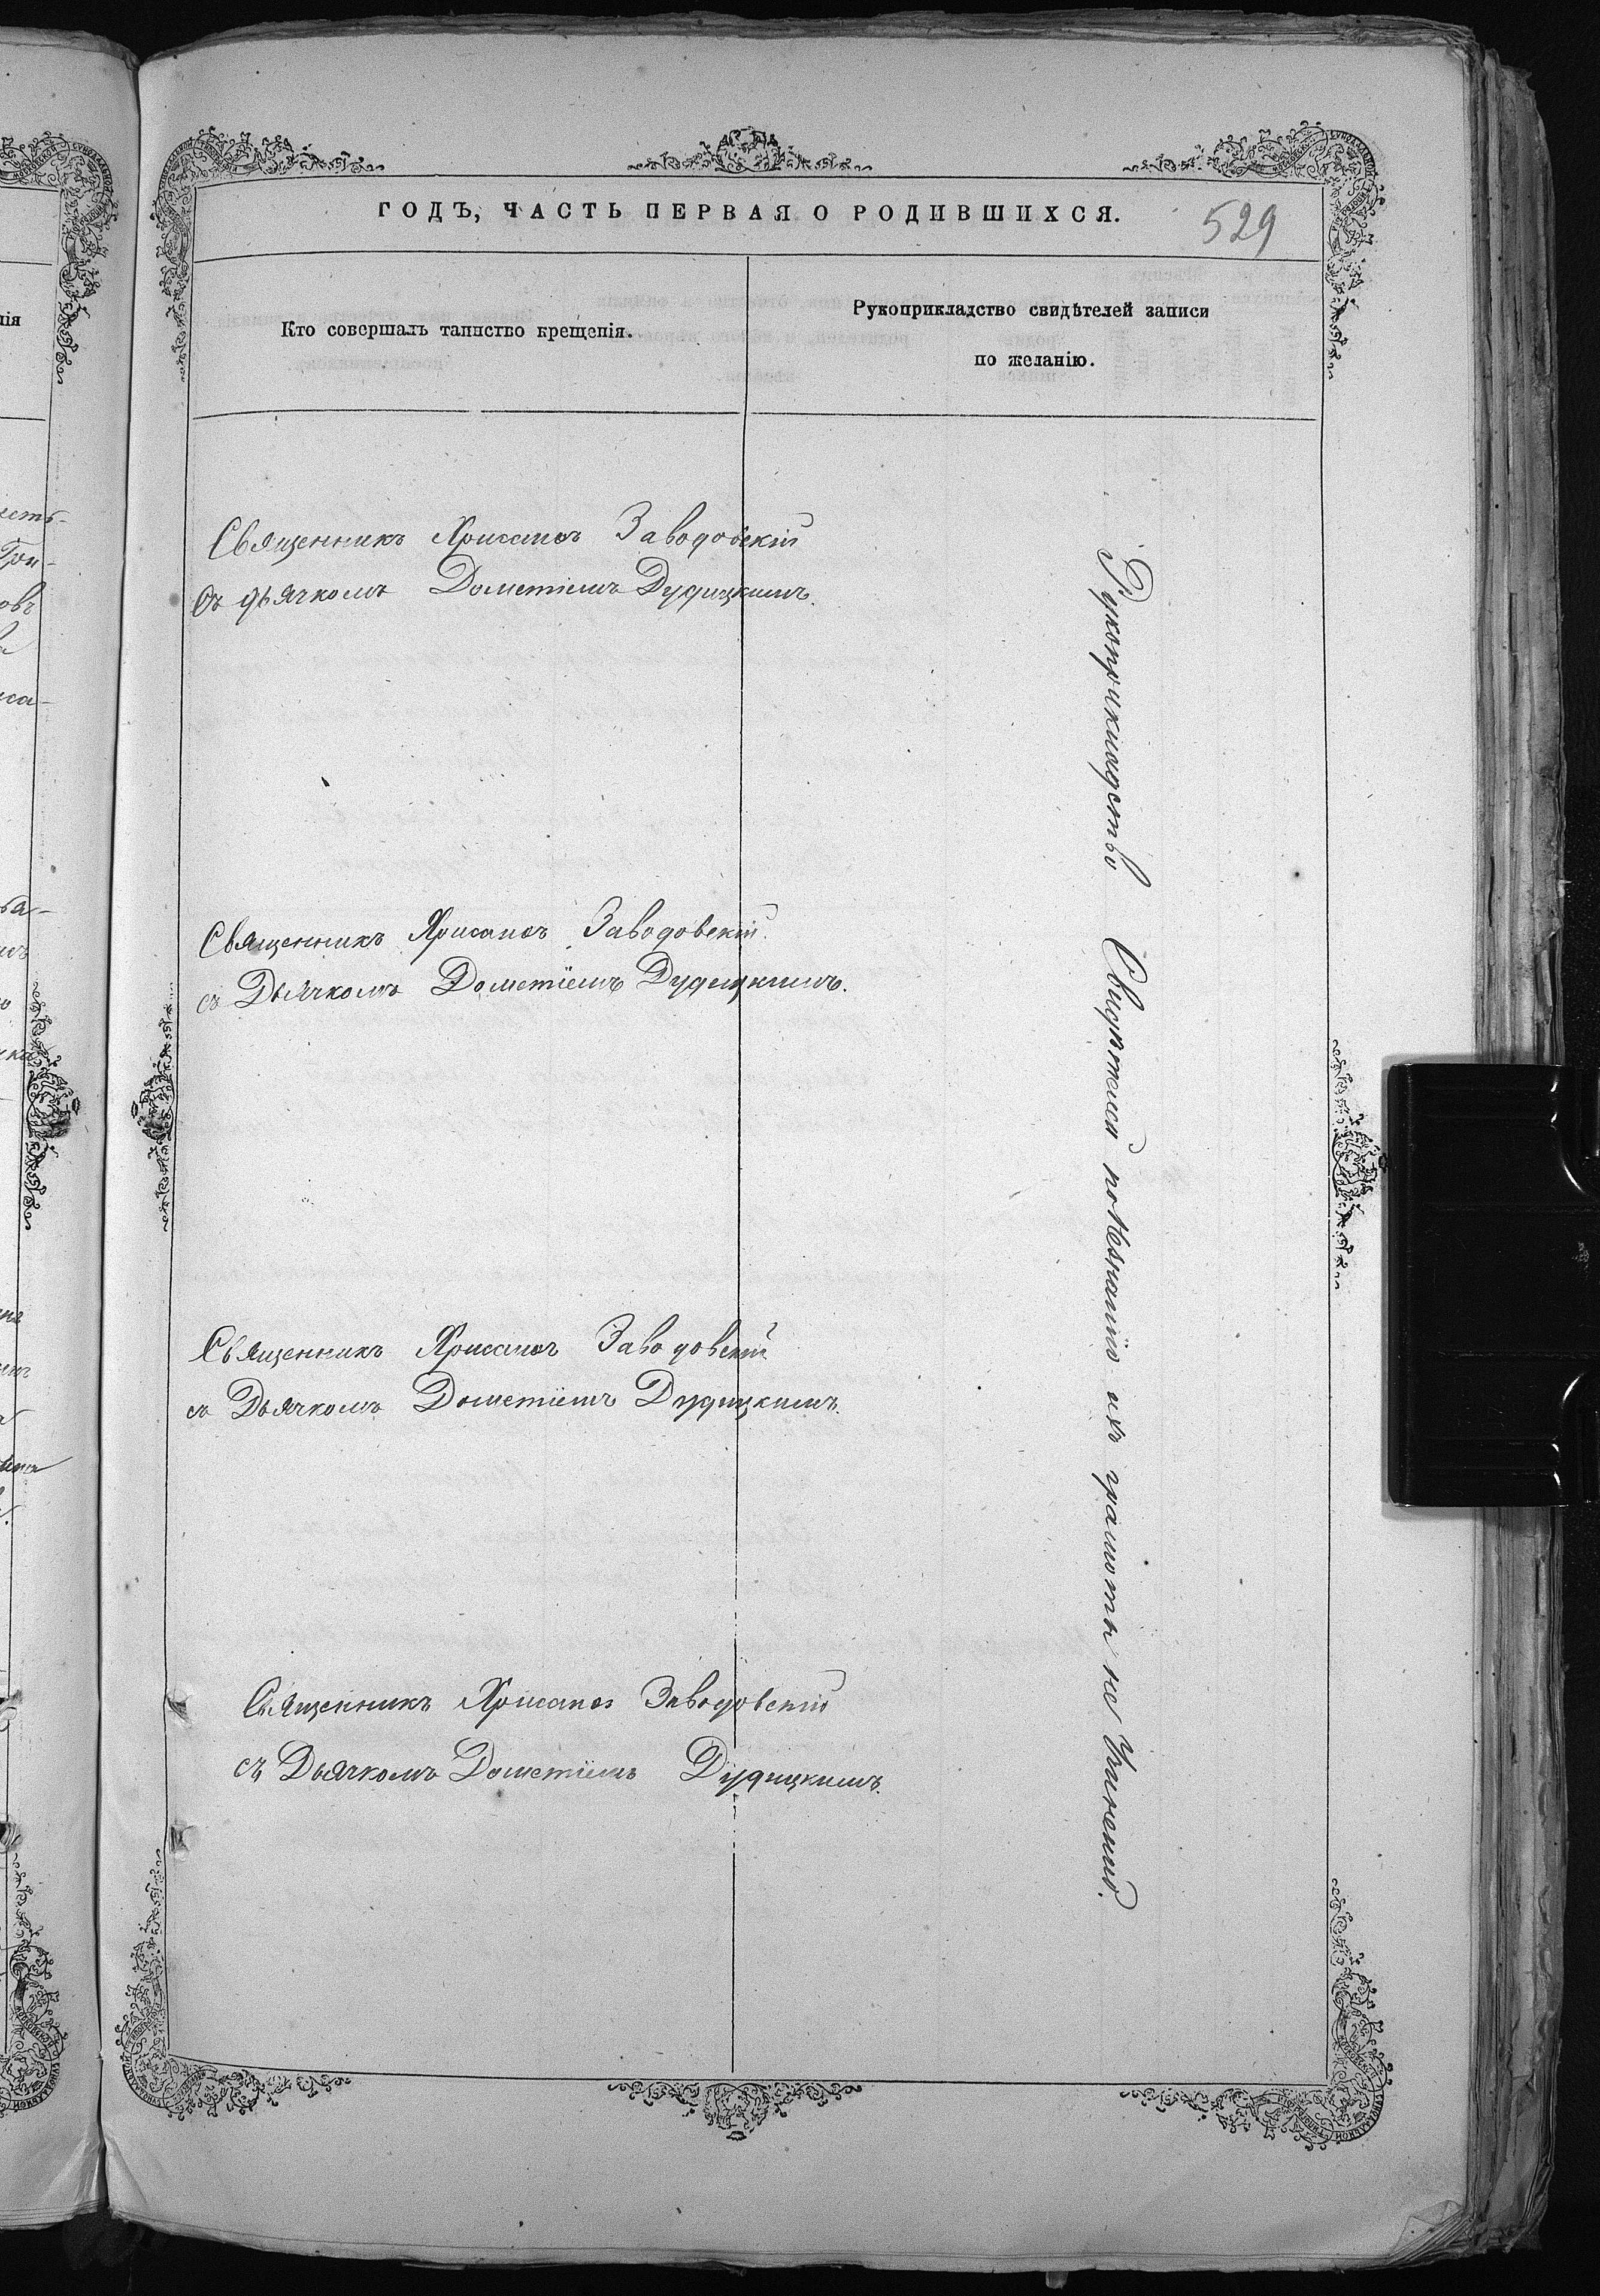 ГОДЪ, ЧАСТЬ ПЕРВАЯ О РОДИВШИХСЯ.
529
Кто совершалъ таинство крещенія.
Рукоприкладство свидѣтелей записи
по желанію.
Священникъ Хрисанѳъ Заводовскій
съ дьячкомъ Дометіемъ Дудицкимъ.
Священникъ Хрисанѳъ Заводовскій.
съ Дьячкомъ Дометіемъ Дудицкимъ.
Священникъ Хрисанѳъ Заводовскій
съ Дьячкомъ Дометіемъ Дудицкимъ.
Священникъ Хрисанѳъ Заводовскій
съ Дьячкомъ Дометіемъ Дудицкимъ.
Рукоприкладство Свидѣтелей по незнанію ихъ грамоты не Учинено.